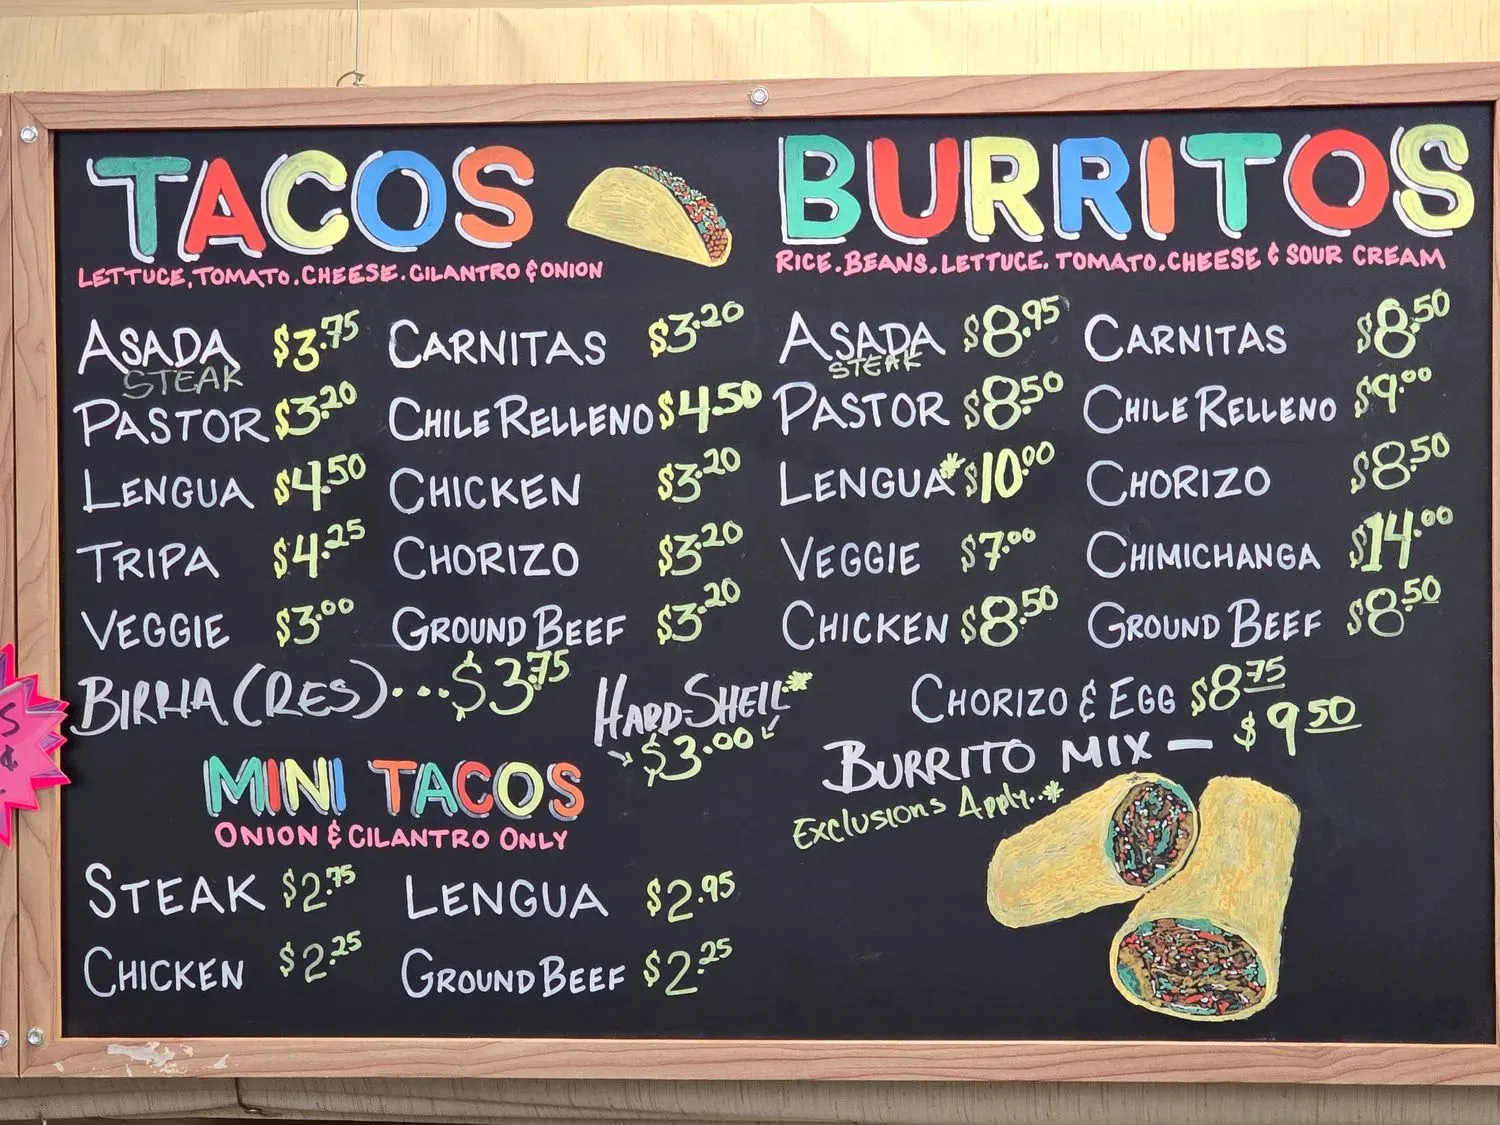 TACOS
LETTUCE, TOMATO. CHEESE. CILANTRO & ONION
ASADA $3.75
STEAK
PASTOR $3.20
LENGUA $4.50
TRIPA $4.25
VEGGIE $3.00
CARNITAS $3.20
CHILE RELLENO $4.50
CHICKEN $3.20
CHORIZO $3.20
GROUND BEEF $3.20
BIRRIA (RES)...$3.75
HARD-SHELL*
$3.00
MINI TACOS
ONION & CILANTRO ONLY
STEAK $2.75
CHICKEN $2.25
LENGUA $2.95
GROUND BEEF $2.25
BURRITOS
RICE. BEANS. LETTUCE. TOMATO. CHEESE & SOUR CREAM
ASADA $8.95
STEAK
PASTOR $8.50
LENGUA* $10.00
VEGGIE $7.00
CHICKEN $8.50
CARNITAS $8.50
CHILE RELLENO $9.00
CHORIZO $8.50
CHIMICHANGA $14.00
GROUND BEEF $8.50
CHORIZO & EGG $8.75
BURRITO MIX — $9.50
Exclusions Apply..*